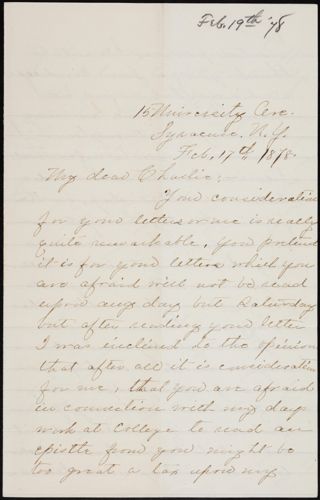 Feb. 19th '78
15 University Ave.
Syracuse. N.Y.
Feb. 17th, 1878.
My dear Charlie:-
Your consideration
for your letters or me is really
quite remarkable, you pretend
it is for your letters which you
are afraid will not be read
upon any day but Saturday
but after reading your letter
I was inclined to the opinion
that after all it is consideration
for me, that you are afraid
in connection with my days
work at College to read an
epistle from you might be
too great a tax upon my